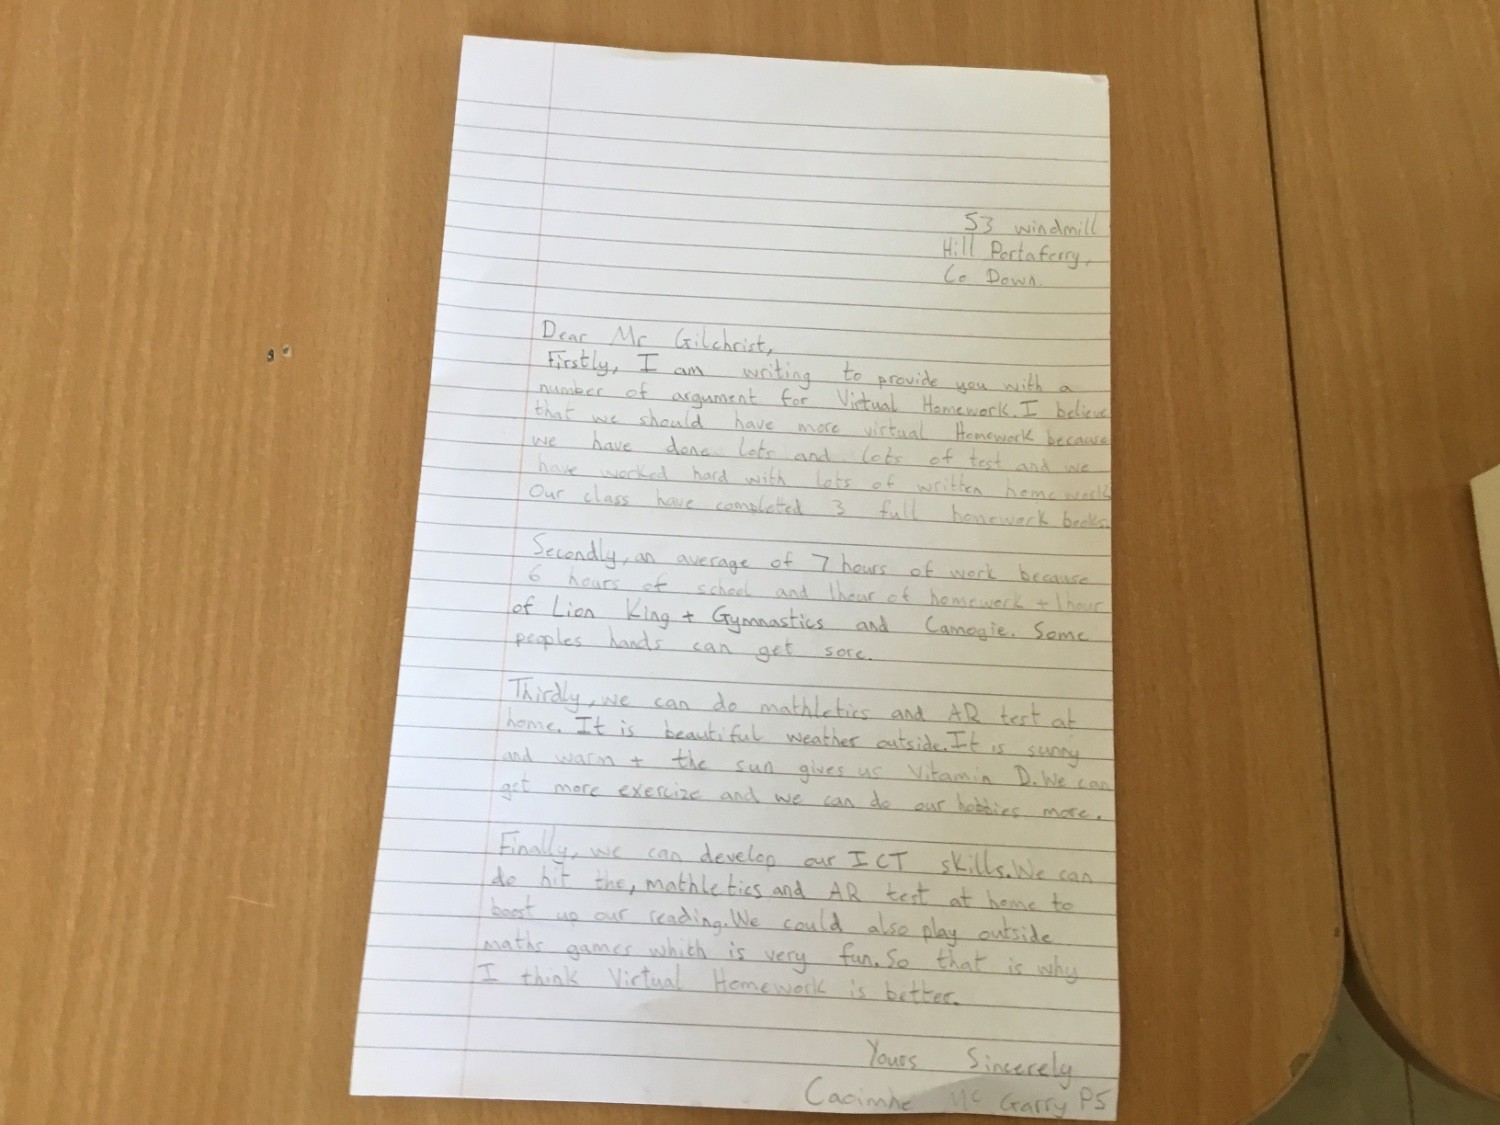 53 windmill
Hill Portaferry,
Co Down.
Dear Mr Gilchrist,
Firstly, I am writing to provide you with a
number of argument for Virtual Homework. I believe
that we should have more virtual Homework because
we have done lots and lots of test and we
have worked hard with lots of written home work
Our class have completed 3 full homework books.
Secondly, an average of 7 hours of work because
6 hours of school and 1hour of homework + 1hour
of Lion King + Gymnastics and Camogie. Some
peoples hands can get sore.
Thirdly, we can do mathletics and AR test at
home. It is beautiful weather outside. It is sunny
and warm + the sun gives us Vitamin D. We can
get more exercize and we can do our hobbies more.
Finally, we can develop our ICT skills. We can
do hit the, mathletics and AR test at home to
boost up our reading. We could also play outside
maths games which is very fun. So that is why
I think Virtual Homework is better.
Yours Sincerely
Caoimhe Mc Garry P5